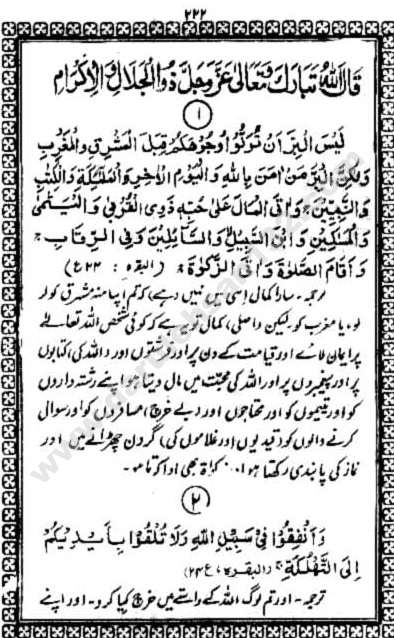 ۲۲۲
قَالَ اللهُ تَبَارَكَ وَتَعَالٰى عَزَّ وَجَلَّ ذُو الْجَلَالِ وَالْإِكْرَامِ
۱
لَيْسَ الْبِرَّ اَنْ تُوَلُّوْا وُجُوْهَكُمْ قِبَلَ الْمَشْرِقِ وَالْمَغْرِبِ
وَلٰكِنَّ الْبِرَّ مَنْ اٰمَنَ بِاللهِ وَالْيَوْمِ الْاٰخِرِ وَالْمَلٰٓئِكَةِ وَالْكِتٰبِ
وَالنَّبِيّٖنَ وَاٰتَى الْمَالَ عَلٰى حُبِّهٖ ذَوِى الْقُرْبٰى وَالْيَتٰمٰى
وَالْمَسٰكِيْنَ وَابْنَ السَّبِيْلِ وَالسَّآئِلِيْنَ وَفِى الرِّقَابِ
وَاَقَامَ الصَّلٰوةَ وَاٰتَى الزَّكٰوةَ (البقرہ : ع۲۲)
ترجمہ۔ سارا کمال اسی میں نہیں ہے، کہ تم اپنا منہ مشرق کو کر
لو، یا مغرب کو، لیکن (اصلی) کمال تو یہ ہے کہ کوئی شخص اللہ تعالٰے
پر ایمان لائے اور قیامت کے دن پر اور فرشتوں اور (اللہ کی) کتابوں
پر، اور پیغمبروں پر اور اللہ کی محبت میں مال دیتا ہو اپنے رشتہ داروں
کو اور یتیموں کو اور محتاجوں اور (بے خرچ) مسافروں کو اور سوال
کرنے والوں کو (قیدیوں اور غلاموں کی) گردن چھڑانے میں اور
نماز کی پابندی رکھتا ہو، زکوٰۃ بھی ادا کرتا ہو۔
۲
وَاَنْفِقُوْا فِىْ سَبِيْلِ اللهِ وَلَا تُلْقُوْا بِاَيْدِيْكُمْ
اِلَى التَّهْلُكَةِ (البقرہ، ع۲۴)
ترجمہ۔ اور تم لوگ اللہ کے راستے میں خرچ کیا کرو۔ اور اپنے